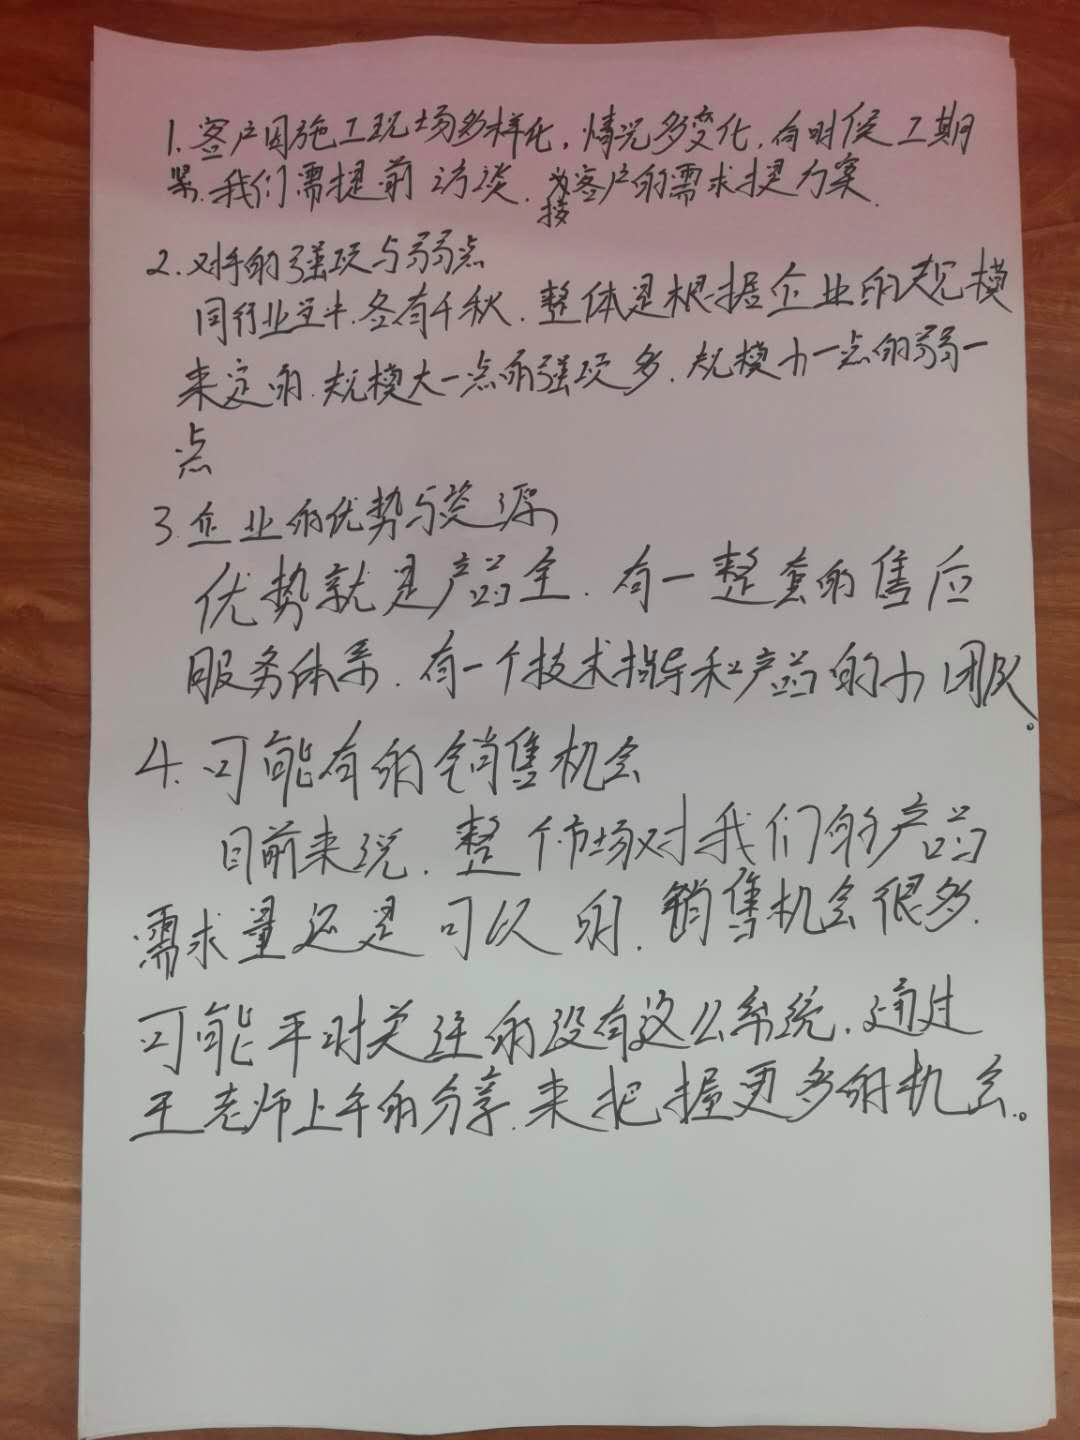 1.客户因施工现场多样化,情况多变化,有时候工期
紧.我们需提前访谈.按客户的需求提方案.
2.对手的强项与弱点
同行业至中.各有千秋.整体是根据企业的规模
来定的.规模大一点的强项多.规模小一点的弱一
点
3.企业的优势与资源
优势就是产品全.有一整套的售后
服务体系.有一个技术指导和产品的小团队。
4.可能有的销售机会
目前来说.整个市场对我们的产品
需求量还是可以的.销售机会很多.
可能平时关注的没有这么系统.通过
王老师上午的分享.来把握更多的机会。